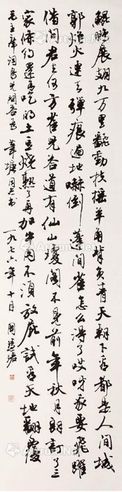 鲲鹏展翅九万里翻動扶摇羊角背負青天朝下看都是人间城
郭炮火連天弹痕遍地嚇倒蓬间雀怎么得了哎呀我要飛躍
借问君去何方雀兒答道有仙山瓊阁不見前年秋月朗訂了三
家條约還有吃的土豆燒熟了再加牛肉不須放屁試看天地翻覆
毛主席词鸟兒问答 同志书 一九 六年十月 周慧珺